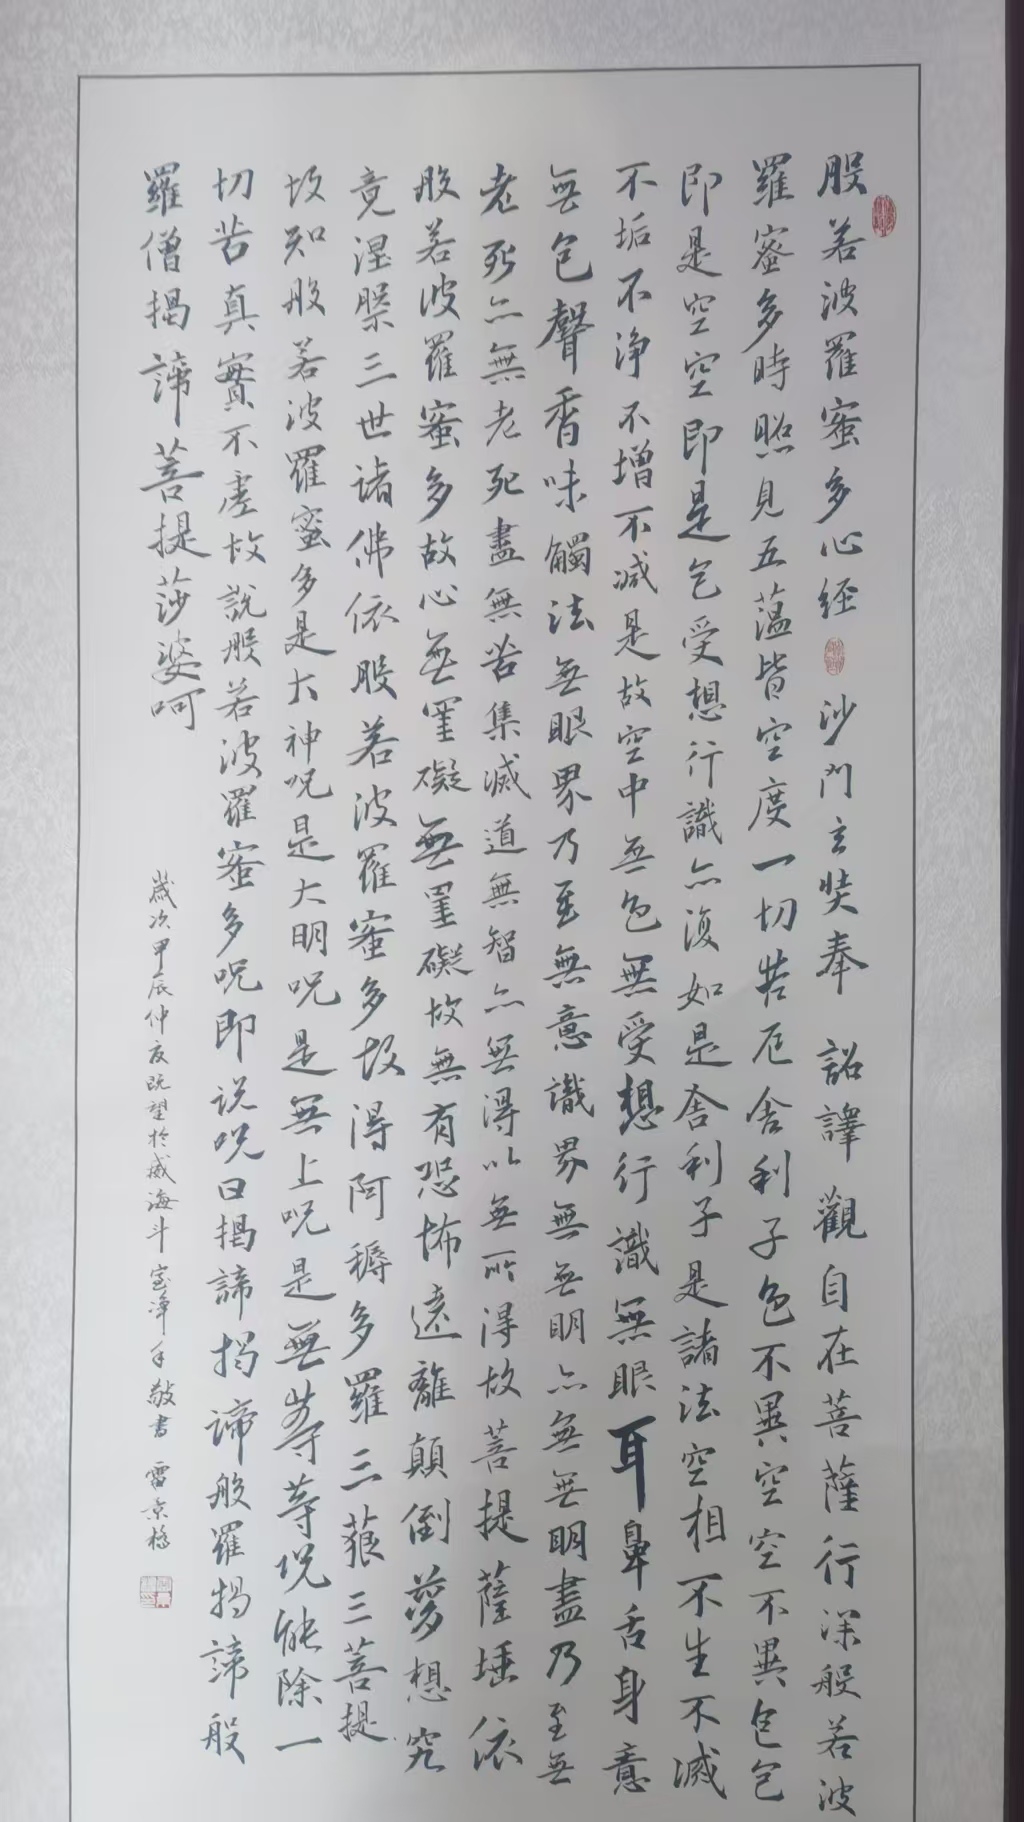 般若波羅蜜多心经 沙門玄奘奉 詔譯 觀自在菩薩行深般若波
羅蜜多時照見五蘊皆空度一切苦厄舍利子色不異空空不異色色
即是空空即是色受想行識亦復如是舍利子是諸法空相不生不滅
不垢不淨不增不減是故空中無色無受想行識無眼耳鼻舌身意
無色聲香味觸法無眼界乃至無意識界無無明亦無無明盡乃至無
老死亦無老死盡無苦集滅道無智亦無得以無所得故菩提薩埵依
般若波羅蜜多故心無罣礙無罣礙故無有恐怖遠離顛倒夢想究
竟涅槃三世諸佛依般若波羅蜜多故得阿耨多羅三藐三菩提
故知般若波羅蜜多是大神呪是大明呪是無上呪是無等等呪能除一
切苦真實不虛故說般若波羅蜜多呪即说呪曰揭諦揭諦般羅揭諦般
羅僧揭諦菩提莎婆呵
歲次甲辰仲夏既望於威海斗室淨手敬書 雷京橋